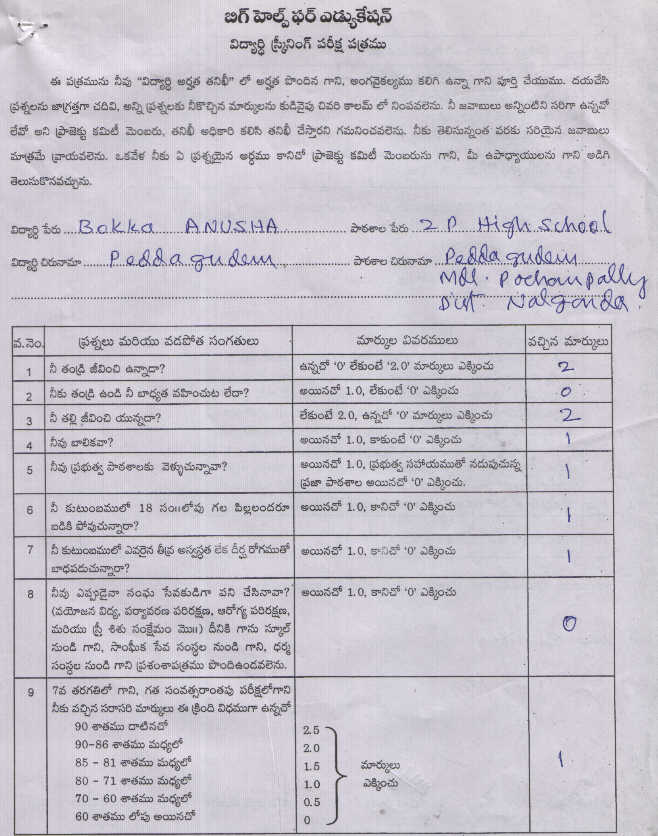 బిగ్ హెల్ప్ ఫర్ ఎడ్యుకేషన్
విద్యార్థి స్క్రీనింగ్ పరీక్ష పత్రము
ఈ పత్రమును నీవు "విద్యార్థి అర్హత తనిఖీ" లో అర్హత పొందిన గాని, అంగవైకల్యము కలిగి ఉన్నా గాని పూర్తి చేయుము. దయచేసి
ప్రశ్నలను జాగ్రత్తగా చదివి, అన్ని ప్రశ్నలకు నీకొచ్చిన మార్కులను కుడివైపు చివరి కాలమ్ లో నింపవలెను. నీ జవాబులు అన్నింటిని సరిగా ఉన్నదో
లేవో అని ప్రాజెక్టు కమిటీ మెంబరు, తనిఖీ అధికారి కలిసి తనిఖీ చేస్తారని గమనించవలెను. నీకు తెలిసున్నంత వరకు సరియైన జవాబులు
మాత్రమే వ్రాయవలెను. ఒకవేళ నీకు ఏ ప్రశ్నయైన అర్థము కానిచో ప్రాజెక్టు కమిటీ మెంబరును గాని, మీ ఉపాధ్యాయులను గాని అడిగి
తెలుసుకొనవచ్చును.
విద్యార్థి పేరు Bokka ANUSHA పాఠశాల పేరు 2 P High School
విద్యార్థి చిరునామా Peddagudem పాఠశాల చిరునామా Peddagudem
Mdl. Pochampally
Dist. Nalgonda.
వ.నెం. ప్రశ్నలు మరియు వడపోత సంగతులు మార్కుల వివరములు వచ్చిన మార్కులు
1 నీ తండ్రి జీవించి ఉన్నాడా? ఉన్నచో '0' లేకుంటే '2.0' మార్కులు ఎక్కించు 2
2 నీకు తండ్రి ఉండి నీ బాధ్యత వహించుట లేదా? అయినచో 1.0, లేకుంటే '0' ఎక్కించు 0
3 నీ తల్లి జీవించి యున్నదా? లేకుంటే 2.0, ఉన్నచో '0' మార్కులు ఎక్కించు 2
4 నీవు బాలికవా? అయినచో 1.0, కాకుంటే '0' ఎక్కించు 1
5 నీవు ప్రభుత్వ పాఠశాలకు వెళ్ళుచున్నావా? అయినచో 1.0, ప్రభుత్వ సహాయముతో నడుపుచున్న 1
ప్రజా పాఠశాల అయినచో '0' ఎక్కించు.
6 నీ కుటుంబములో 18 సం॥లోపు గల పిల్లలందరూ అయినచో 1.0, కానిచో '0' ఎక్కించు 1
బడికి పోవుచున్నారా?
7 నీ కుటుంబములో ఎవరైన తీవ్ర అస్వస్థత లేక దీర్ఘ రోగముతో అయినచో 1.0, కానిచో '0' ఎక్కించు 1
బాధపడుచున్నారా?
8 నీవు ఎప్పుడైనా సంఘ సేవకుడిగా పని చేసినావా? అయినచో 1.0, కానిచో '0' ఎక్కించు 0
(వయోజన విద్య, పర్యావరణ పరిరక్షణ, ఆరోగ్య పరిరక్షణ,
మరియు స్త్రీ శిశు సంక్షేమం మొ॥) దీనికి గాను స్కూల్
నుండి గాని, సాంఘీక సేవ సంస్థల నుండి గాని, ధర్మ
సంస్థల నుండి గాని ప్రశంశాపత్రము పొందిఉండవలెను.
9 7వ తరగతిలో గాని, గత సంవత్సరాంతపు పరీక్షలోగాని
నీకు వచ్చిన సరాసరి మార్కులు ఈ క్రింది విధముగా ఉన్నచో
90 శాతము దాటినచో 2.5
90-86 శాతము మధ్యలో 2.0
85 - 81 శాతము మధ్యలో 1.5 మార్కులు 1
80 - 71 శాతము మధ్యలో 1.0 ఎక్కించు
70 - 60 శాతము మధ్యలో 0.5
60 శాతము లోపు అయినచో 0